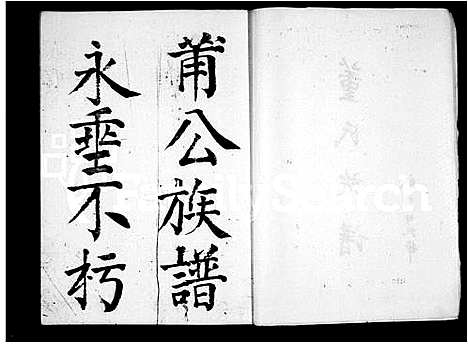 莆公族譜
永垂不朽
董氏族譜
FamilySearch